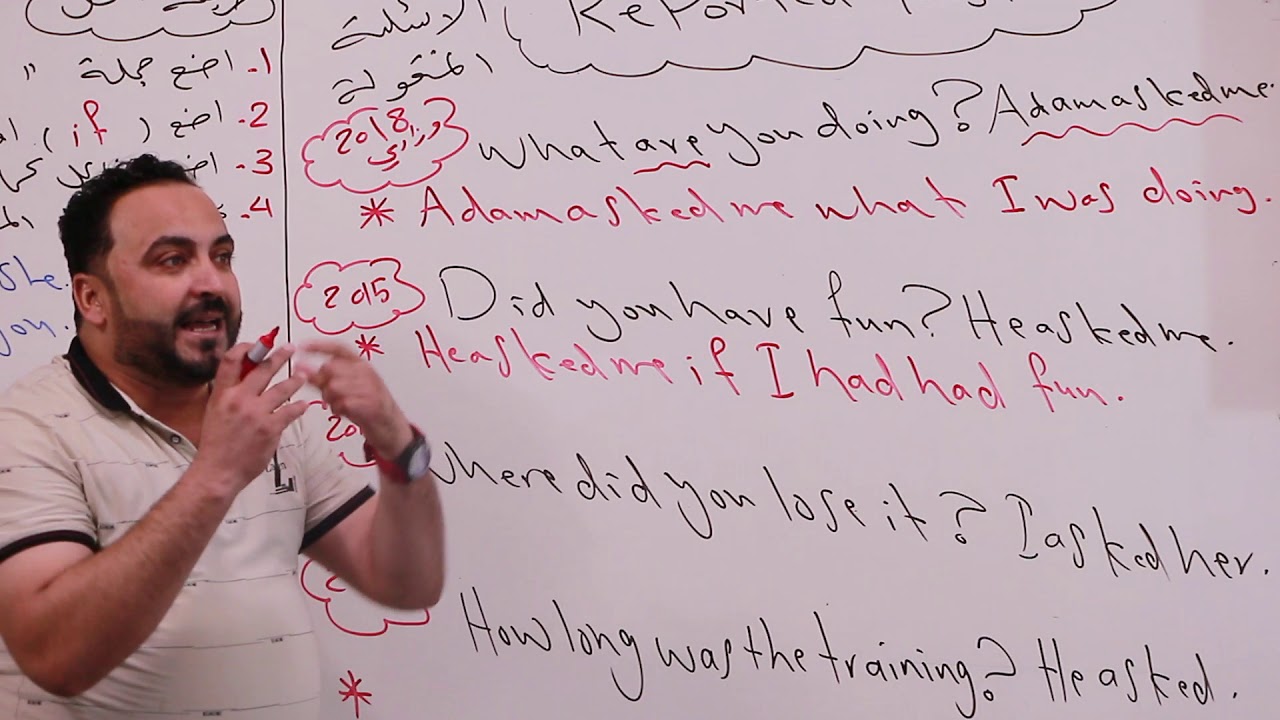 Reported
الاسئلة
المنقولة
1. اضع جملة "
2. اضع ( if )
3.
4.
she.
you.
2018 وزاري
What are you doing? Adam asked me.
* Adam asked me what I was doing.
2015
Did you have fun? He asked me.
* He asked me if I had had fun.
Where did you lose it? I asked her.
How long was the training? He asked.
*